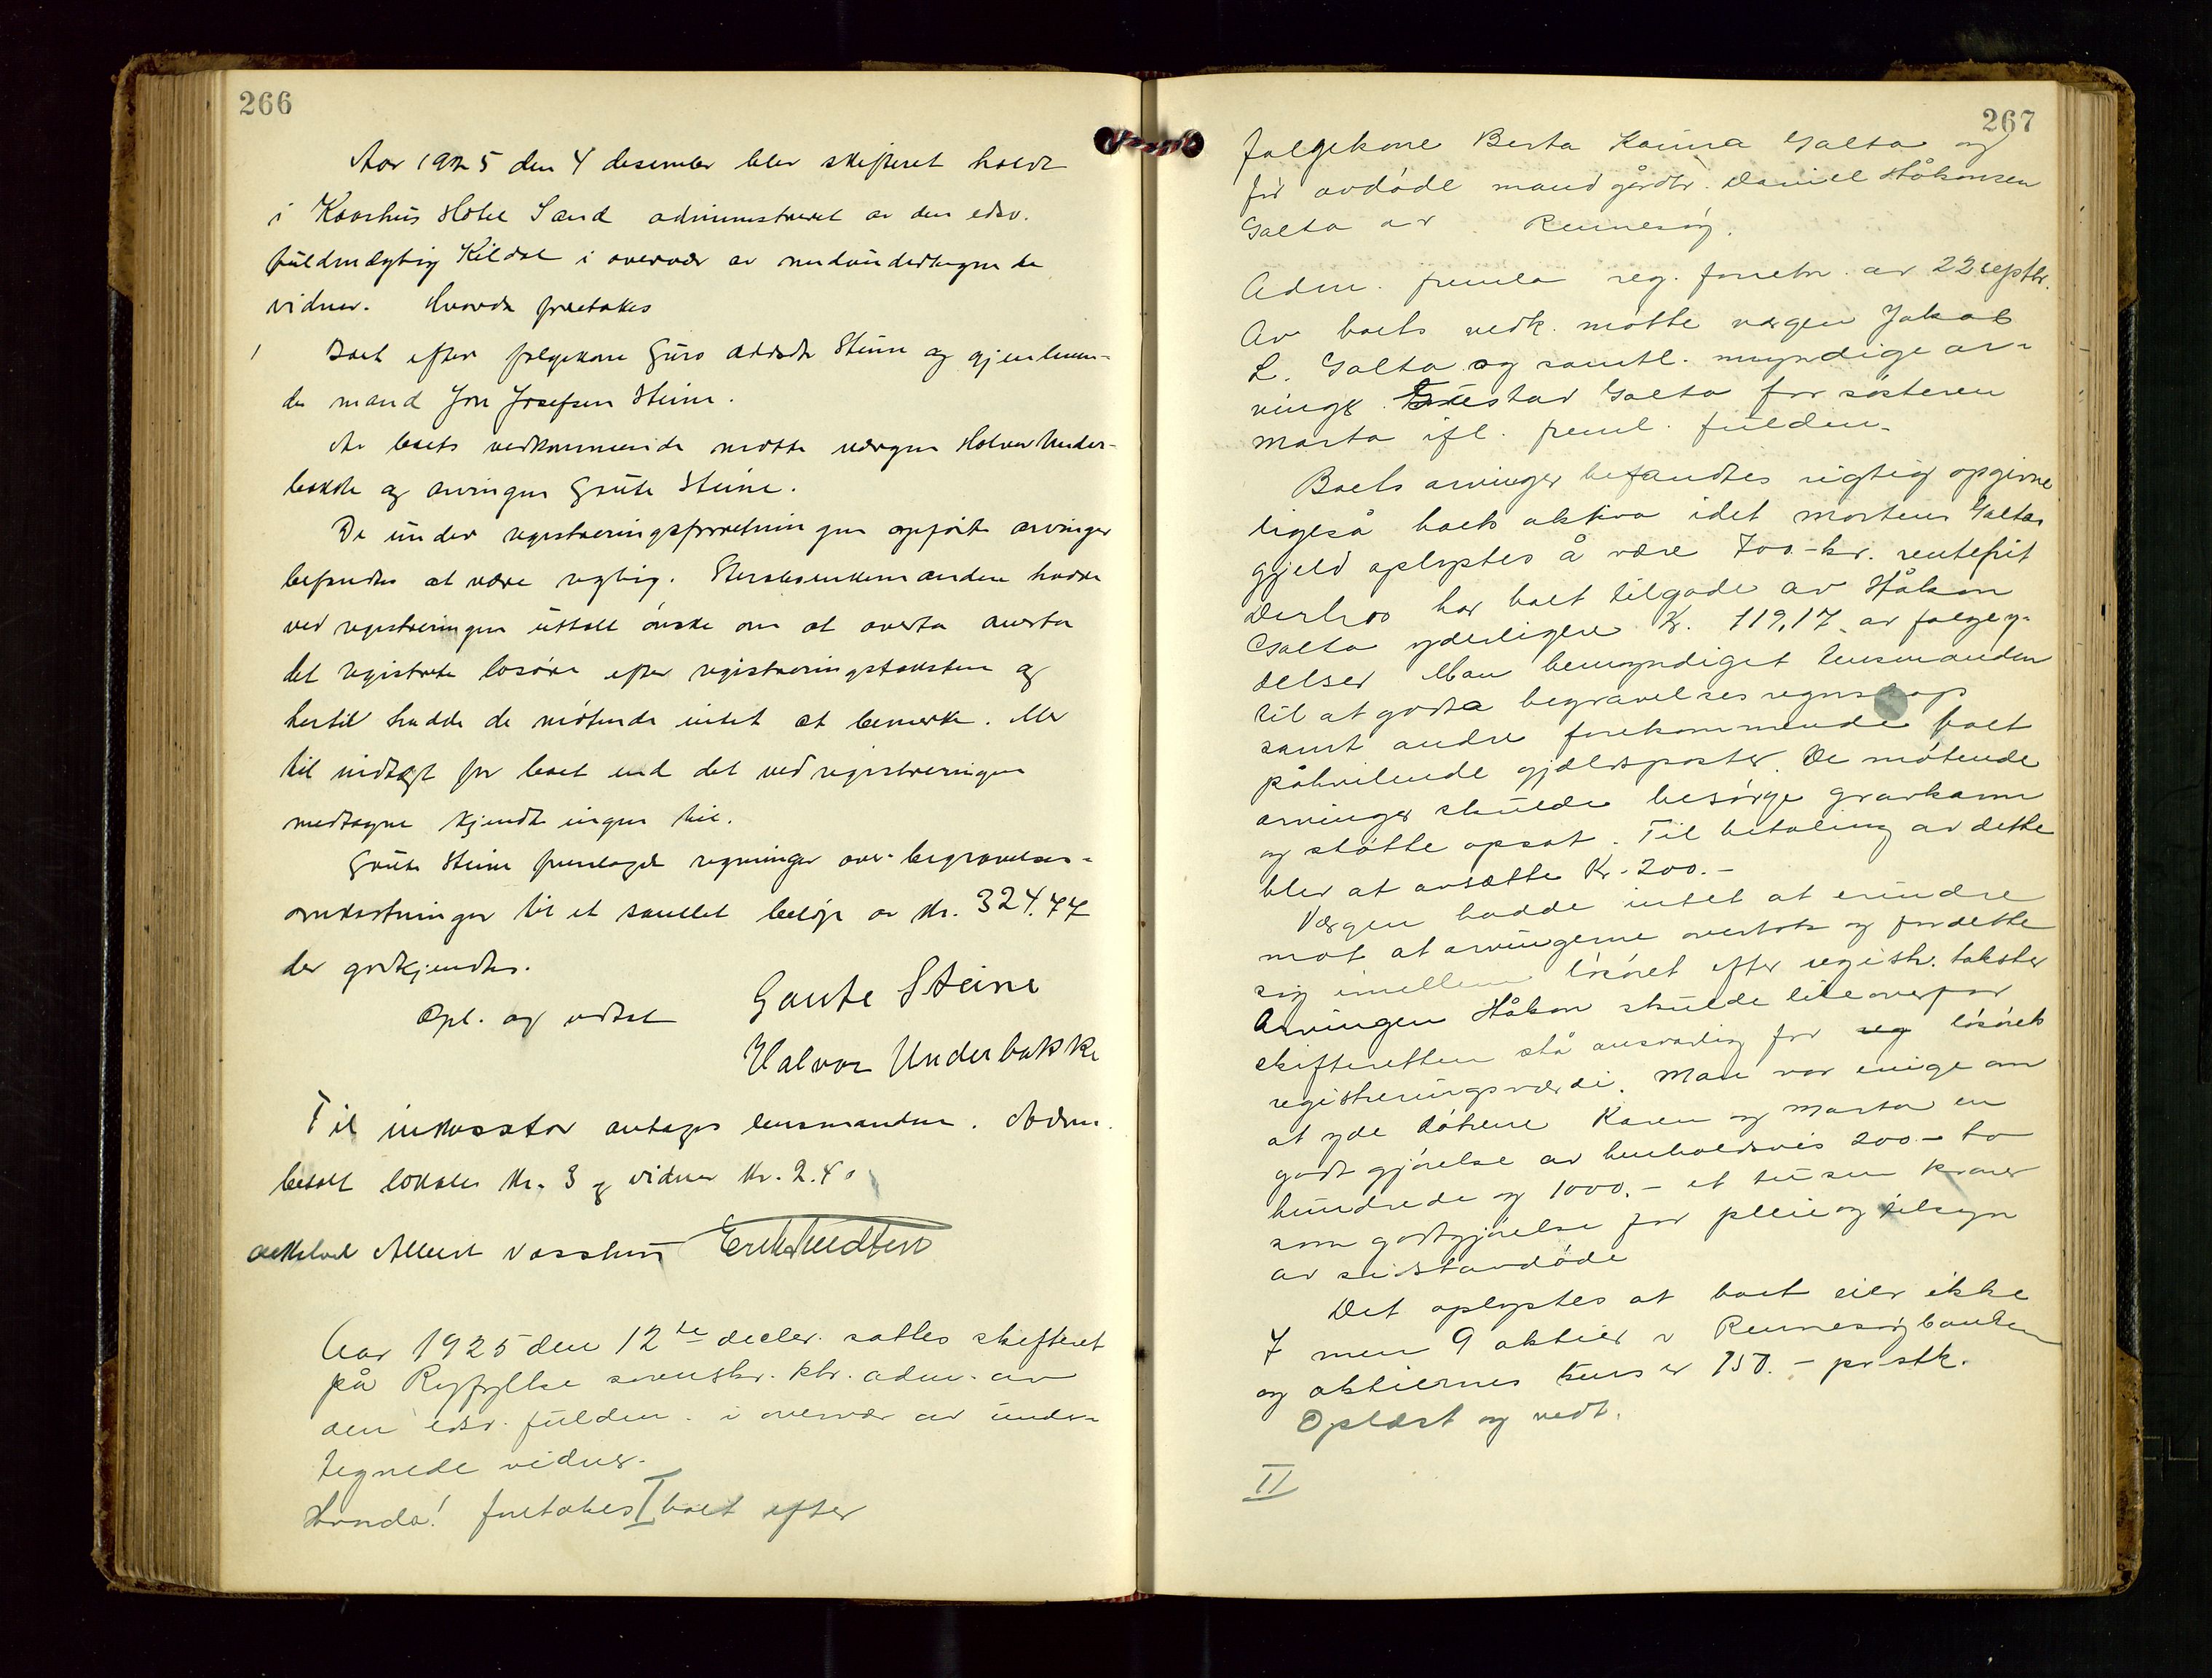 266
Aar 1925 den 4 desember blev skifteret holdt
i Kaarhus Hotel Sand administreret av den edsv.
fuldmægtig Kildal i overvær av nedundertegnede
vidner. Hvorda foretokes
1 Boet efter følgekone Guro Steine og gjenleven-
de mand Jon Josefsen Steine.
Av boets vedkommende møtte værgen Halvor Under-
bakke og arvingen Gaute Steine.
De under registreringsforretningen opførte arvinger
befandtes at være rigtig. Sterbosenkemanden hadde
ved registreringen uttalt ønske om at overta
det registrerte løsøre efter registreringstaksten og
hertil hadde de møtende intet at bemerke. Mer
til indtægt for boet end det ved registreringen
medtagne kjendte ingen til.
Gaute Steine fremlagde regninger over begravelses-
omkostninger til et samlet beløp av kr. 324.77
der godkjendtes.
Opl. og vedtat Gaute Steine
Halvor Underbakke
Til inkassator antages lensmanden. Adm.
betalt lokale kr. 3 og vidner kr. 2.40
Albert Vasshus
Aar 1925 den 12te decbr. sattes skifteret
på Ryfylke sorenskr. ktr. adm. av
den edsv. fuldm. i overvær av under-
tegnede vidner.
Hvorda! foretokes I boet efter
267
følgekone Berta Karina Galta og
før avdøde mand gårdbr. Daniel Håkonsen
Galta av Rennesøy.
Adm. fremla reg. forretn. av 22 septbr.
Av boets vedk. møtte værgen Jakob
L. Galta og samtl. myndige ar-
vinger. Gustav Galta for søsteren
Marta ifl. freml. fuldm.
Boets arvinger befandtes rigtig opgivne
ligeså boets aktiva idet Mortens Galtas
gjeld oplystes å være 700.- kr. rentefrit
Derhos har boet tilgode av Håkon
Galta yderligere kr. 119,17 av følgey-
delser Man bemyndiget lensmanden
til at godta begravelsesregnskap
samt andre forekommende boet
påhvilende gjældsposter. De møtende
arvinger skulde besørge gravkarm
og støtte opsat. Til betaling av dette
blev at avsætte kr. 200.-
Værgen hadde intet at erindre
mot at arvingerne overtok og fordelte
sig imellem løsøret efter registr. takster
Arvingen Håkon skulde like overfor
skifteretten stå ansvarlig for reg løsørets
registreringsværdi. Man var enige om
at yde døtrene Karen og Marta en
godtgjørelse av henholdsvis 200.- to
hundrede og 1000.- et tusen kroner
som godtgjørelse for pleie og tilsyn
av sidstavdøde
Det oplystes at boet eier ikke
7 men 9 aktier i Rennesøybanken
og aktiernes kurs er 150.- pr. stk.
Oplæst og vedt.
II